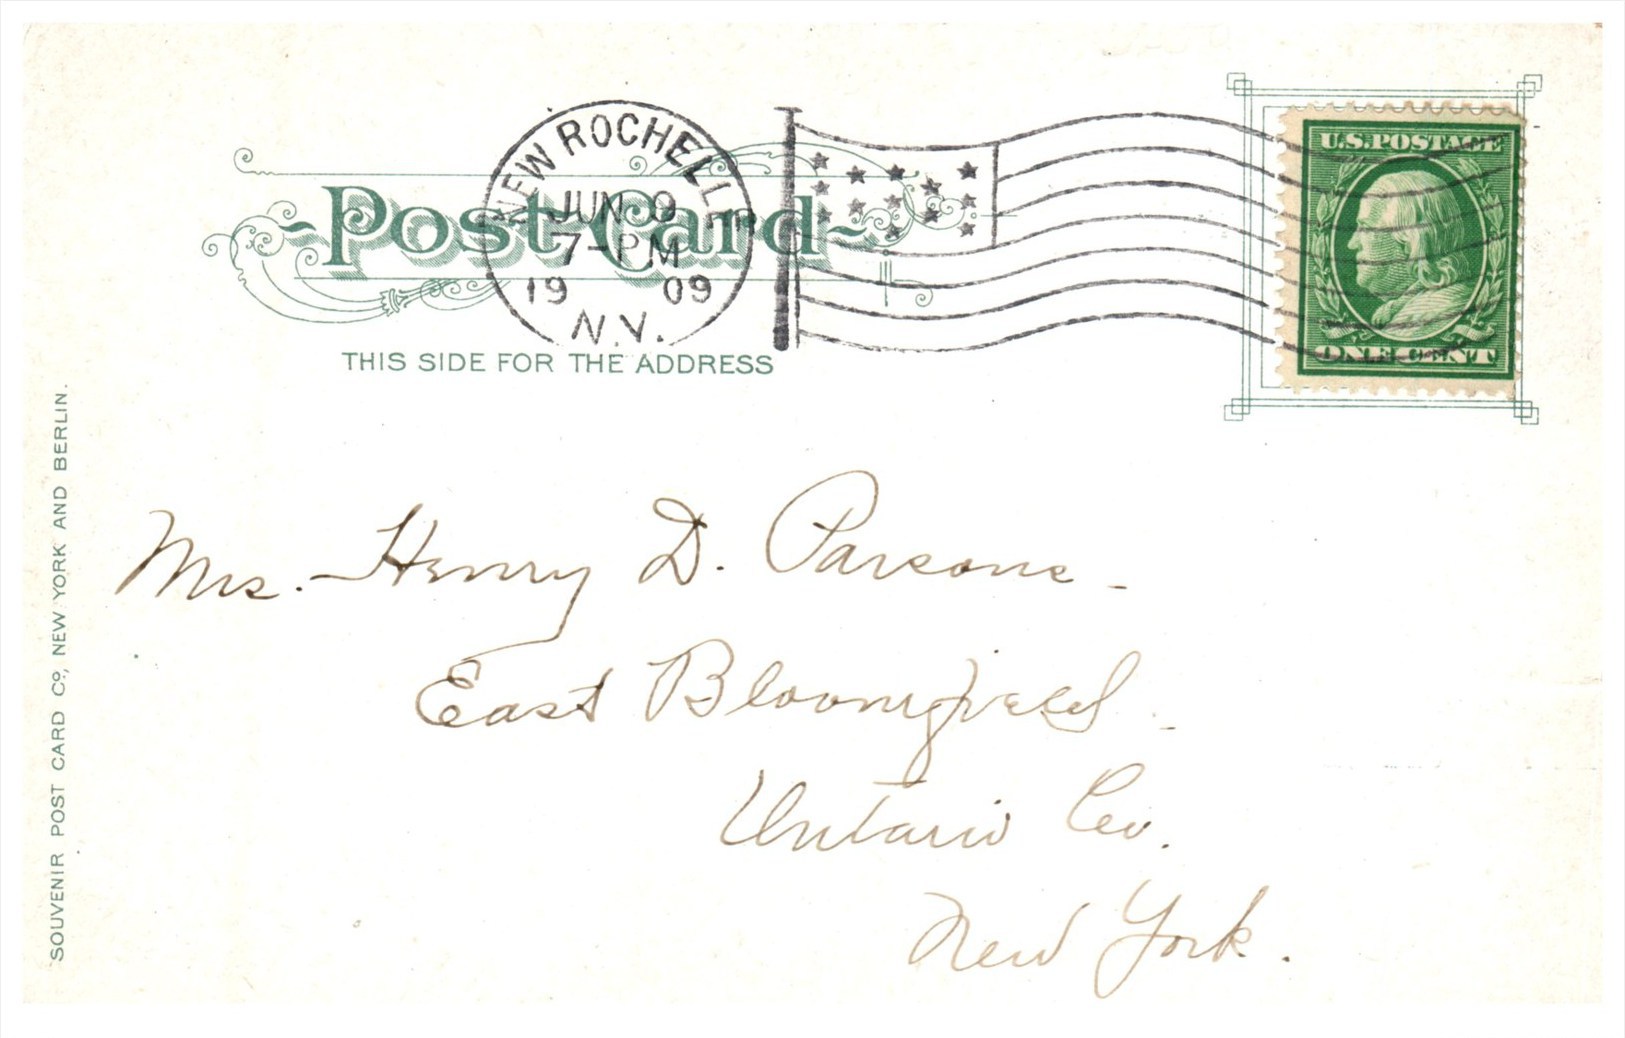 NEW ROCHELLE
JUN 9
7-PM
19 09
N.Y.
Post Card
THIS SIDE FOR THE ADDRESS
U.S.POSTAGE
ONE CENT
Mrs. Henry D. Parsons
East Bloomfield
Ontario Co.
New York.
SOUVENIR POST CARD Co., NEW YORK AND BERLIN.